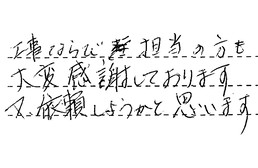 工事ならびに担当の方も
大変感謝しております
又依頼しようかと思います